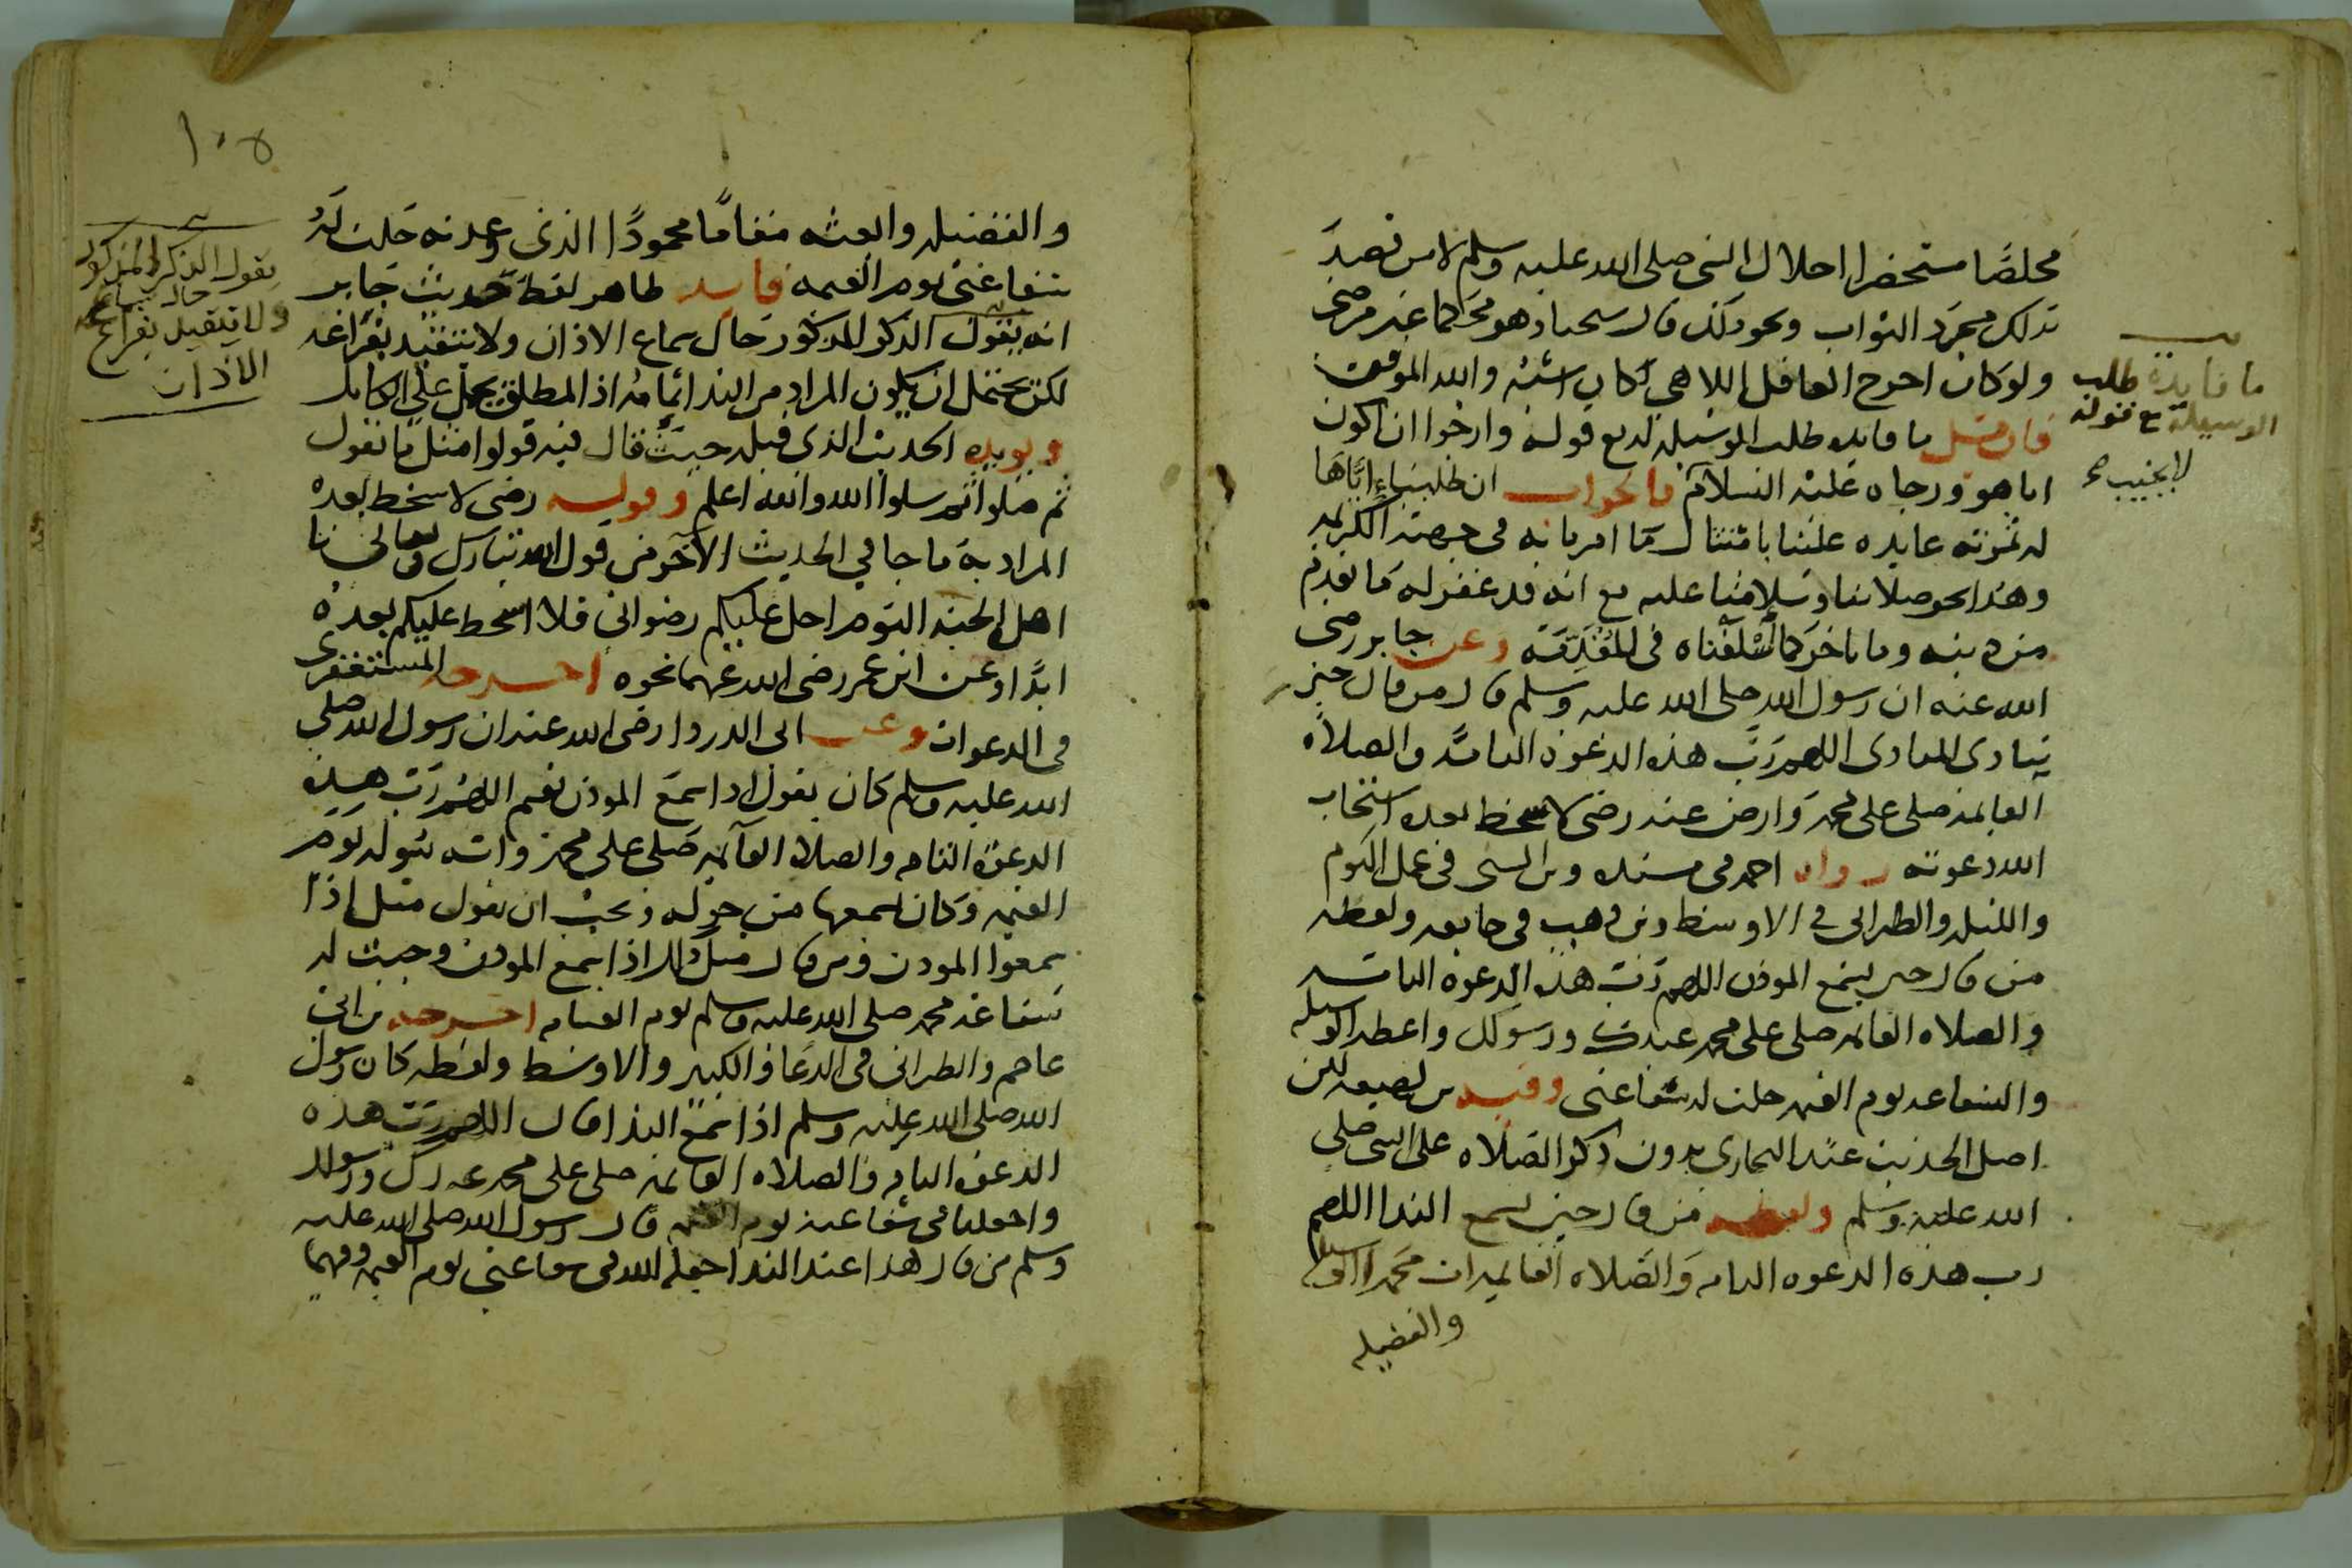 مخلصا مستحضرا اجلال النبى صلى الله عليه وسلم لا من قصد
بذلك مجرد الثواب ونحو ذلك قال شيخنا وهو تحكم غير مرضى
ولو كان اخرج الغافل اللاهى لكان اشبه والله الموفق
فان قيل ما فايده طلب الوسيله له مع قوله وارجوا ان اكون
انا هو ورجاه عليه السلام فالجواب ان طلبنا اياها
له ثمرته عايده علينا بامتثال ما امرنا به فى جهته الكريمه
وهذا نحو صلاتنا وسلامنا عليه مع انه قد غفر له ما تقدم
من ذنبه وما تاخر كما اسلفناه فى المقدمة وعن جابر رضى
الله عنه ان رسول الله صلى الله عليه وسلم قال من قال حين
ينادى المنادى اللهم رب هذه الدعوة التامة والصلاة
القايمة صلى على محمد وارض عنه رضى لا سخط بعده استجاب
الله دعوته رواه احمد فى مسنده وبن السنى فى عمل اليوم
والليله والطبرانى فى الاوسط وبن وهب فى جامعه ولفظه
من قال حين يسمع الموذن اللهم رب هذه الدعوة التامه
والصلاه القايمه صلى على محمد عبدك ورسولك واعطه الوسيله
والشفاعه يوم القيمه حلت له شفاعتى وفيه بن لهيعه لكن
اصل الحديث عند البخارى بدون ذكر الصلاه على النبى صلى
الله عليه وسلم ولفظه من قال حين يسمع الندا اللهم
رب هذه الدعوه التامه والصلاه القايمه ات محمدا الوسيله
والفضيله
ما فايدة طلب
الوسيلة مع قوله
والفضيله وابعثه مقاما محمودا الذى وعدته حلت له
شفاعتى يوم القيمه فايده ظاهر لفظ حديث جابر
انه يقول الذكر المذكور حال سماع الاذان ولا يتقيد بفراغه
لكن يحتمل ان يكون المراد من الندا تمامه اذ المطلق يحمل على الكامل
ويويده الحديث الذى قبله حيث قال فيه قولوا مثل ما يقول
ثم صلوا ثم سلوا الله والله اعلم وقوله رضى لا سخط بعده
المراد به ما جا فى الحديث الآخر من قول الله تبارك وتعالى يا
اهل الجنه اليوم احل عليكم رضوانى فلا اسخط عليكم بعده
ابدا وعن ابن عمر رضى الله عنهما نحوه اخرجه المستغفرى
فى الدعوات وعن ابى الدردا رضى الله عنه ان رسول الله صلى
الله عليه وسلم كان يقول اذا سمع الموذن يقيم اللهم رب هذه
الدعوة التامه والصلاة القايمه صلى على محمد واته سوله يوم
القيمه وكان يسمعها من حوله ويحب ان يقول مثل اذا
سمعوا الموذن ومن قال مثل ذلك اذا سمع الموذن وجبت له
شفاعة محمد صلى الله عليه وسلم يوم القيامه اخرجه بن ابى
عاصم والطبرانى فى الدعا والكبير والاوسط ولفظه كان رسول
الله صلى الله عليه وسلم اذا سمع الندا قال اللهم رب هذه
الدعوة التامه والصلاه القايمه صلى على محمد عبدك ورسولك
واجعلنا فى شفاعته يوم القيمه قال رسول الله صلى الله عليه
وسلم من قال هذا عند الندا جعله الله فى شفاعتى يوم القيمه وفيهما
١٠٥
يقول الذكر المذكور
حال سماعه
ولا يتقيد بفراغ
الاذان